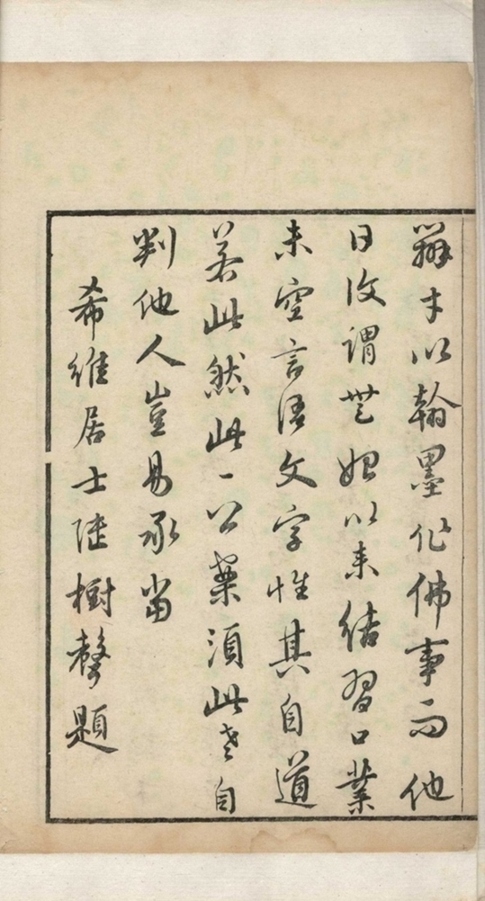 辯才以翰墨作佛事而他
日後謂無始以來結習口業
未空言語文字惟其自道
若此然此一公案須此老自
判他人豈易承當
希維居士陸樹聲題